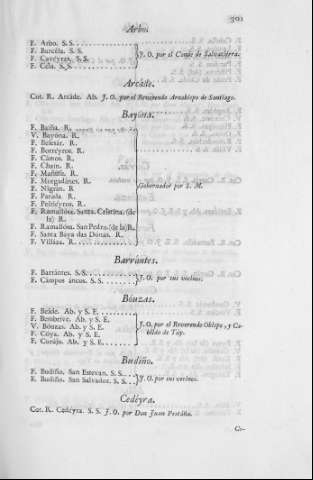 301
Arbo.
F. Arbo. S. S.
F. Barcéla. S. S.
F. Cavéyras. S. S.
F. Céla. S. S.
J. O. por el Conde de Salvatierra.
Arcáde.
Cot. R. Arcáde. Ab. J. O. por el Reverendo Arzobispo de Santiago.
Bayóna.
F. Baíña. R.
V. Bayóna. R.
F. Belesár. R.
F. Borréyros. R.
F. Cámos. R.
F. Chaín. R.
F. Mañúfe. R.
F. Morgadánes. R.
F. Nigrán. R.
F. Paráda. R.
F. Peitiéyros. R.
F. Ramallósa. Santa Cristina. (de la) R.
F. Ramallósa. San Pedro. (de la) R.
F. Santa Baya das Dónas. R.
F. Villáza. R.
Gobernador por S. M.
Barrántes.
F. Barrántes. S. S.
F. Cámpos áncos. S. S.
J. O. por sus vecinos.
Bóuzas.
F. Beáde. Ab. y S. E.
F. Bembríve. Ab. y S. E.
V. Bóuzas. Ab. y S. E.
F. Cóya. Ab. y S. E.
F. Corújo. Ab. y S. E.
J. O. por el Reverendo Obispo, y Cabildo de Tuy.
Budíño.
F. Budíño. San Estevan. S. S.
F. Budíño. San Salvador. S. S.
J. O. por sus vecinos.
Cedéyra.
Cot. R. Cedéyra. S. S. J. O. por Don Juan